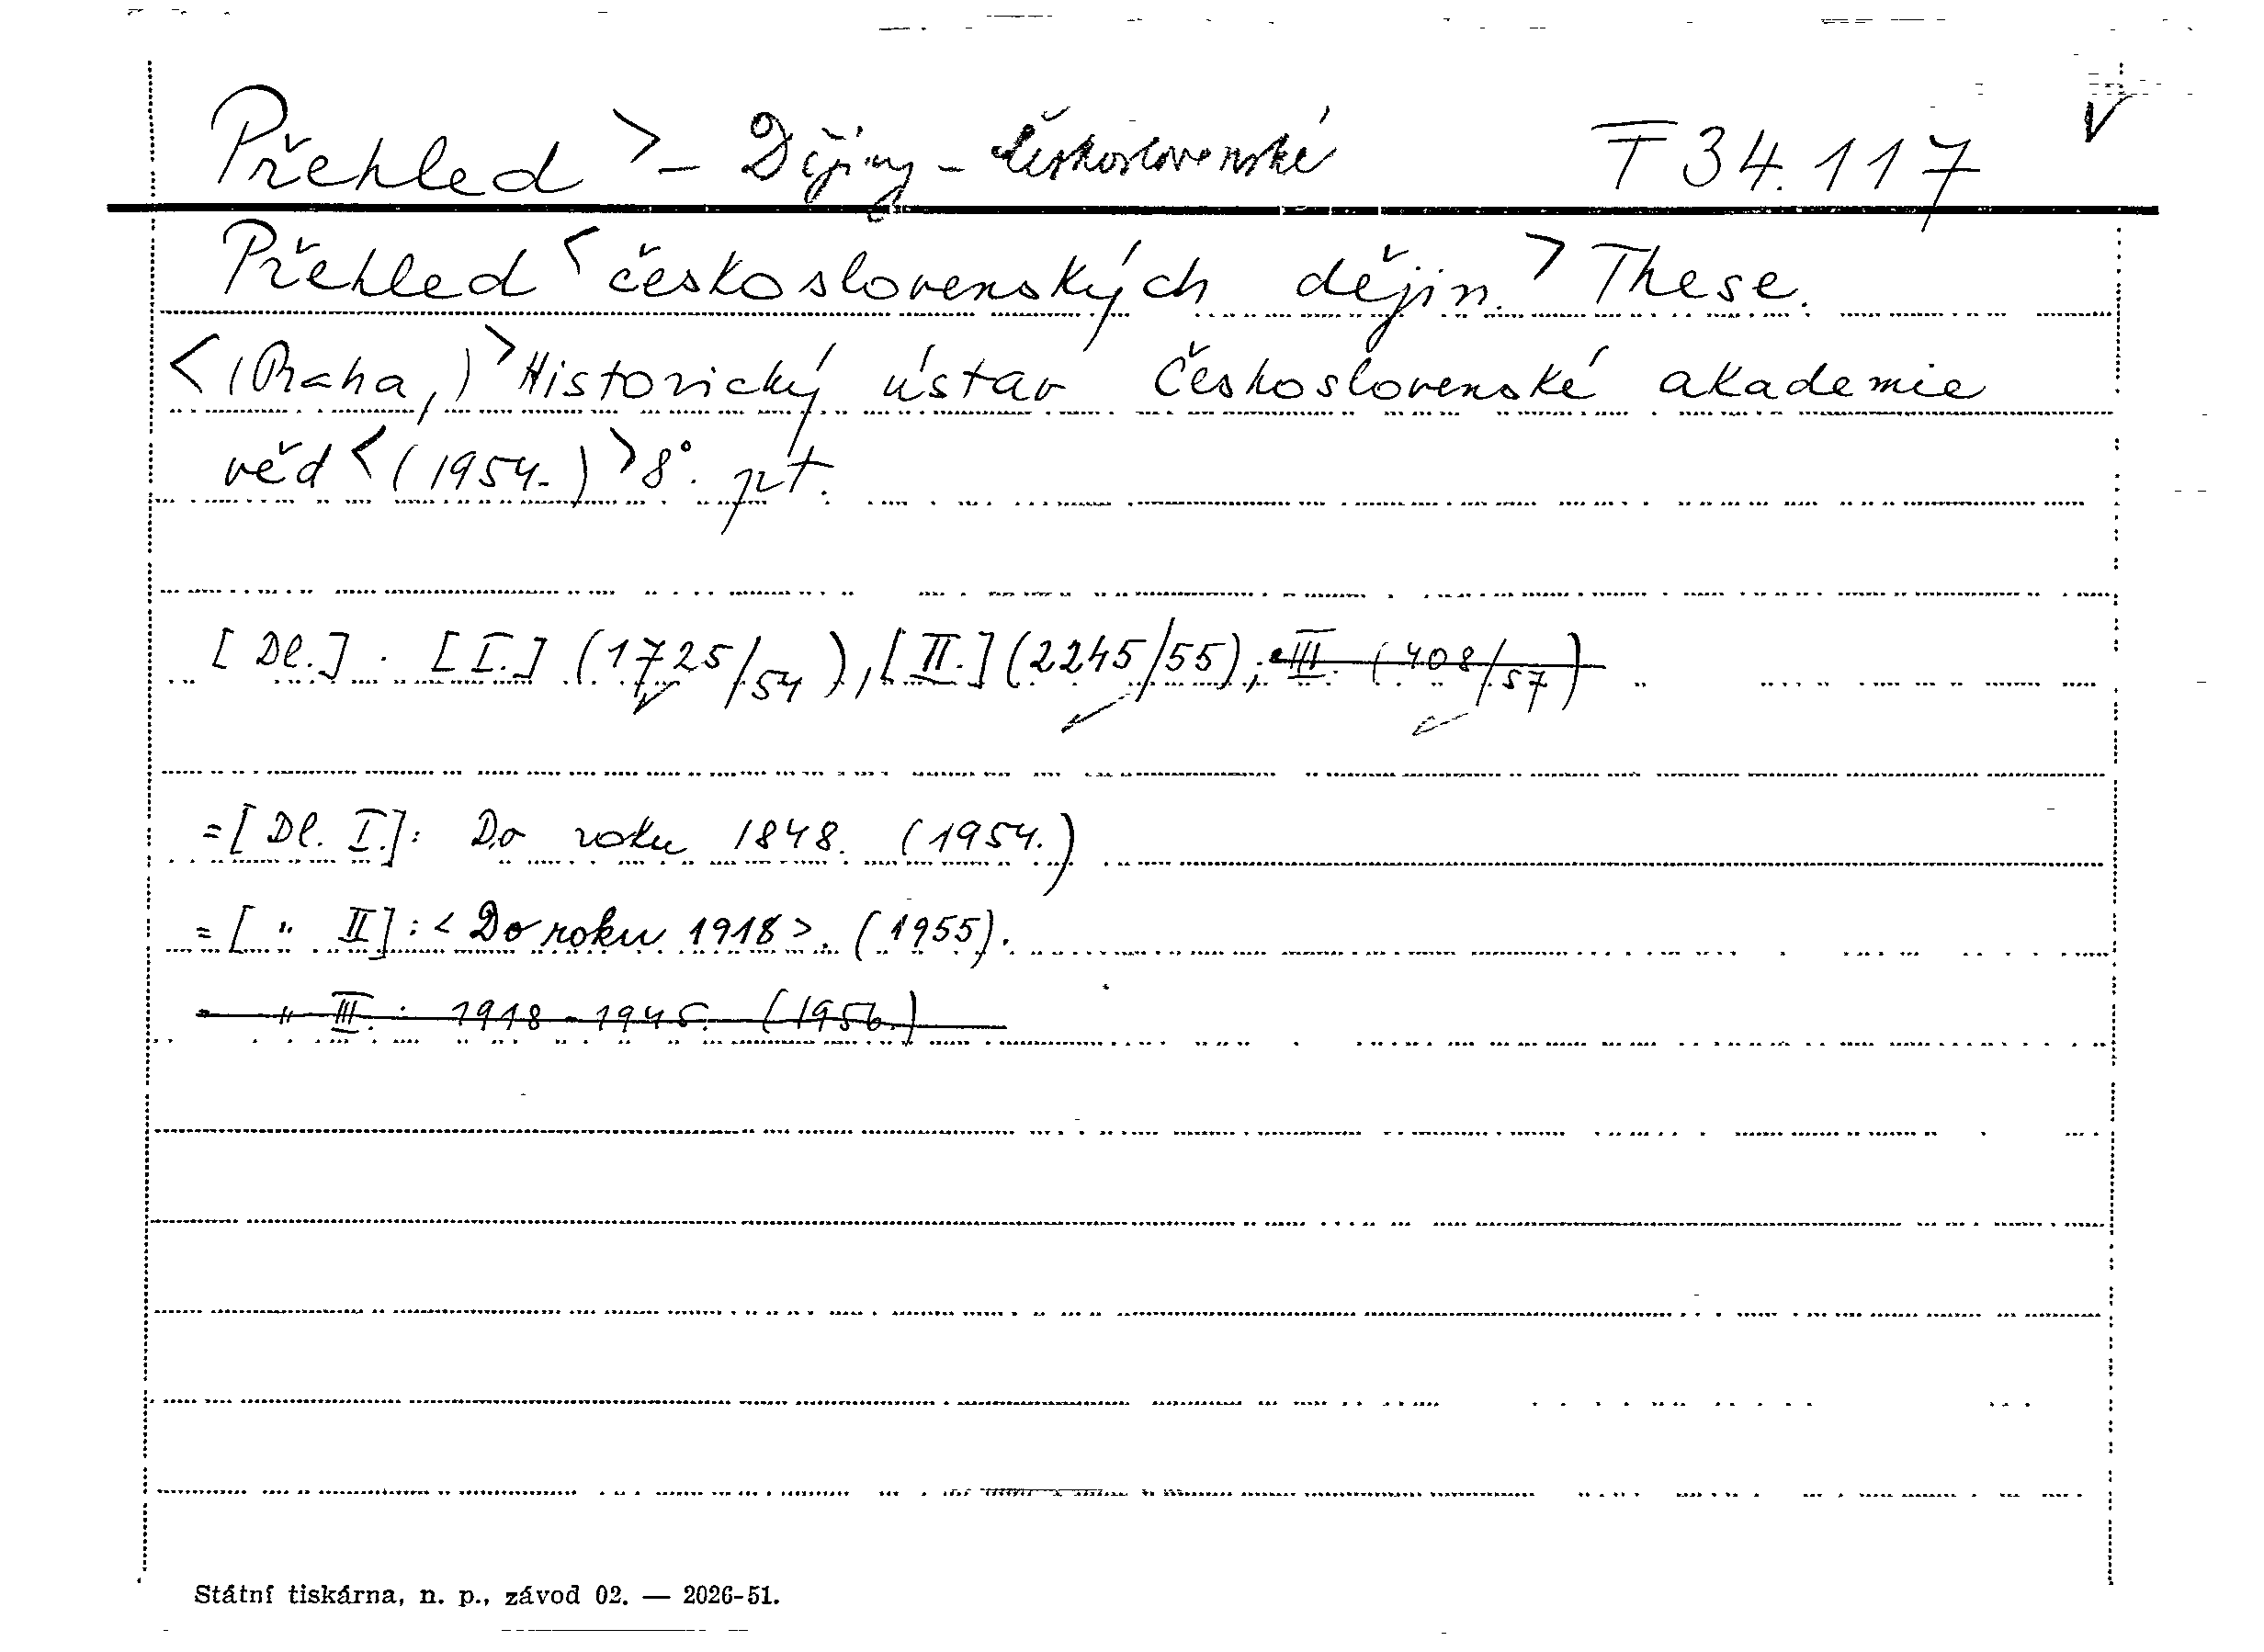 Přehled > - Dějiny - československé F 34.117 V
Přehled < československých dějin. > These.
< (Praha,) > Historický ústav Československé akademie
věd < (1954-) > 8°. pzt.
[Dl.]. [I.] (1725/54), [II.] (2245/55), III. (408/57)
= [Dl. I.]: Do roku 1848. (1954.)
= [ " II]: < Do roku 1918 >. (1955).
= " III.: 1918-1945. (1956.)
Státní tiskárna, n. p., závod 02. — 2026-51.